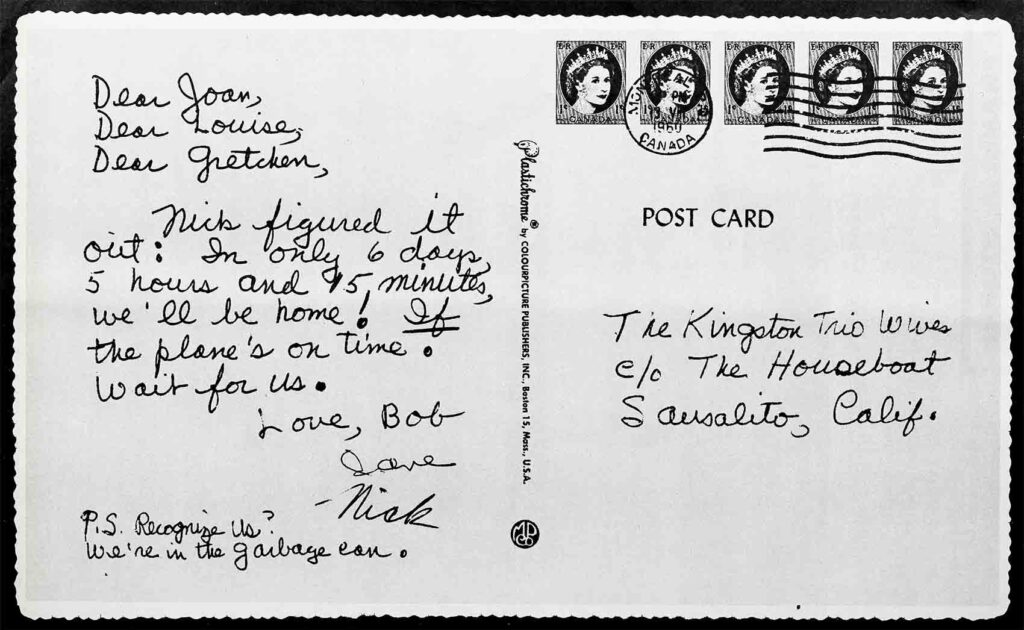 Dear Joan,
Dear Louise,
Dear Gretchen,
Nick figured it
out: In only 6 days,
5 hours and 15 minutes,
we'll be home! If
the plane's on time.
Wait for us.
Love, Bob
Dave
- Nick
P.S. Recognize Us?
We're in the garbage can.
Plastichrome® by COLOURPICTURE PUBLISHERS, INC., Boston 15, Mass., U.S.A.
E R
E R
E R
E R
E R
1960
CANADA
POST CARD
The Kingston Trio Wives
c/o The Houseboat
Sausalito, Calif.